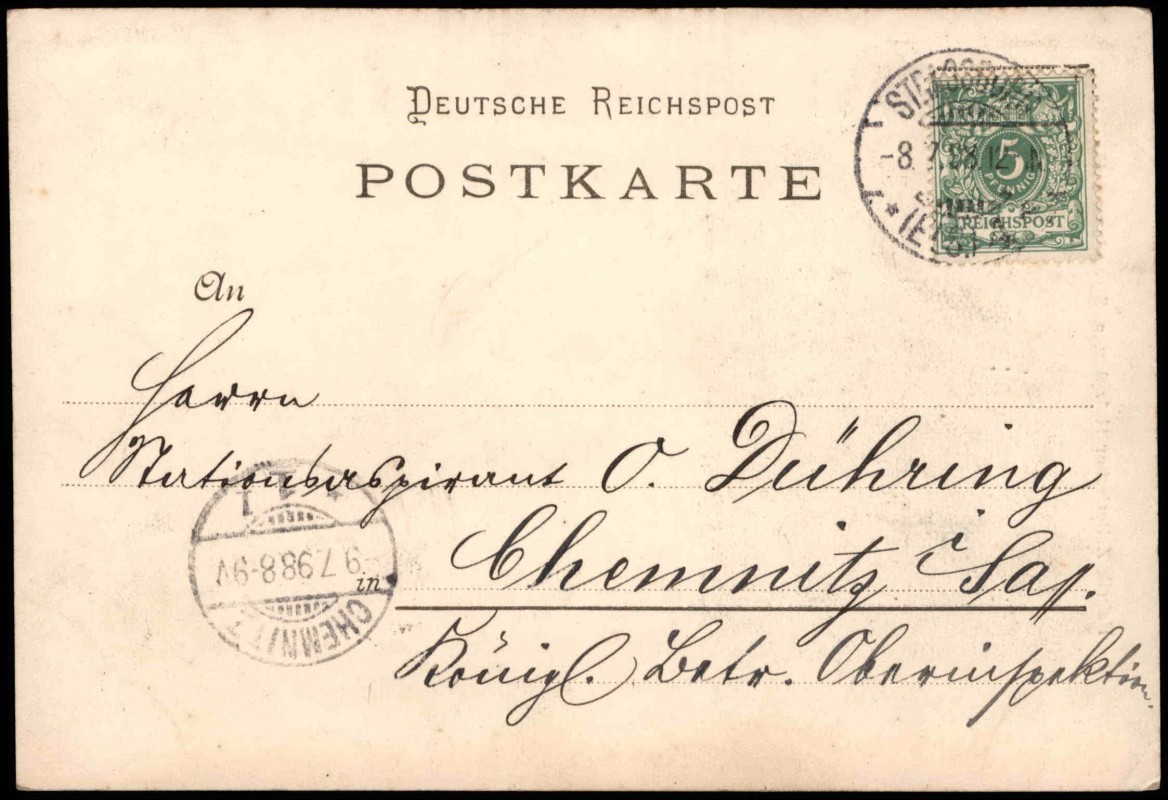 DEUTSCHE REICHSPOST
POSTKARTE
STRASSBURG
-8. 7. 98. 12
* (ELS.)
5
PFENNIG
REICHSPOST
An
Herrn
Stationsaspirant O. Dühring
in Chemnitz i Saf.
Königl. Betr. Oberinspektion.
CHEMNITZ
* 1
-9.7.98.8-9V